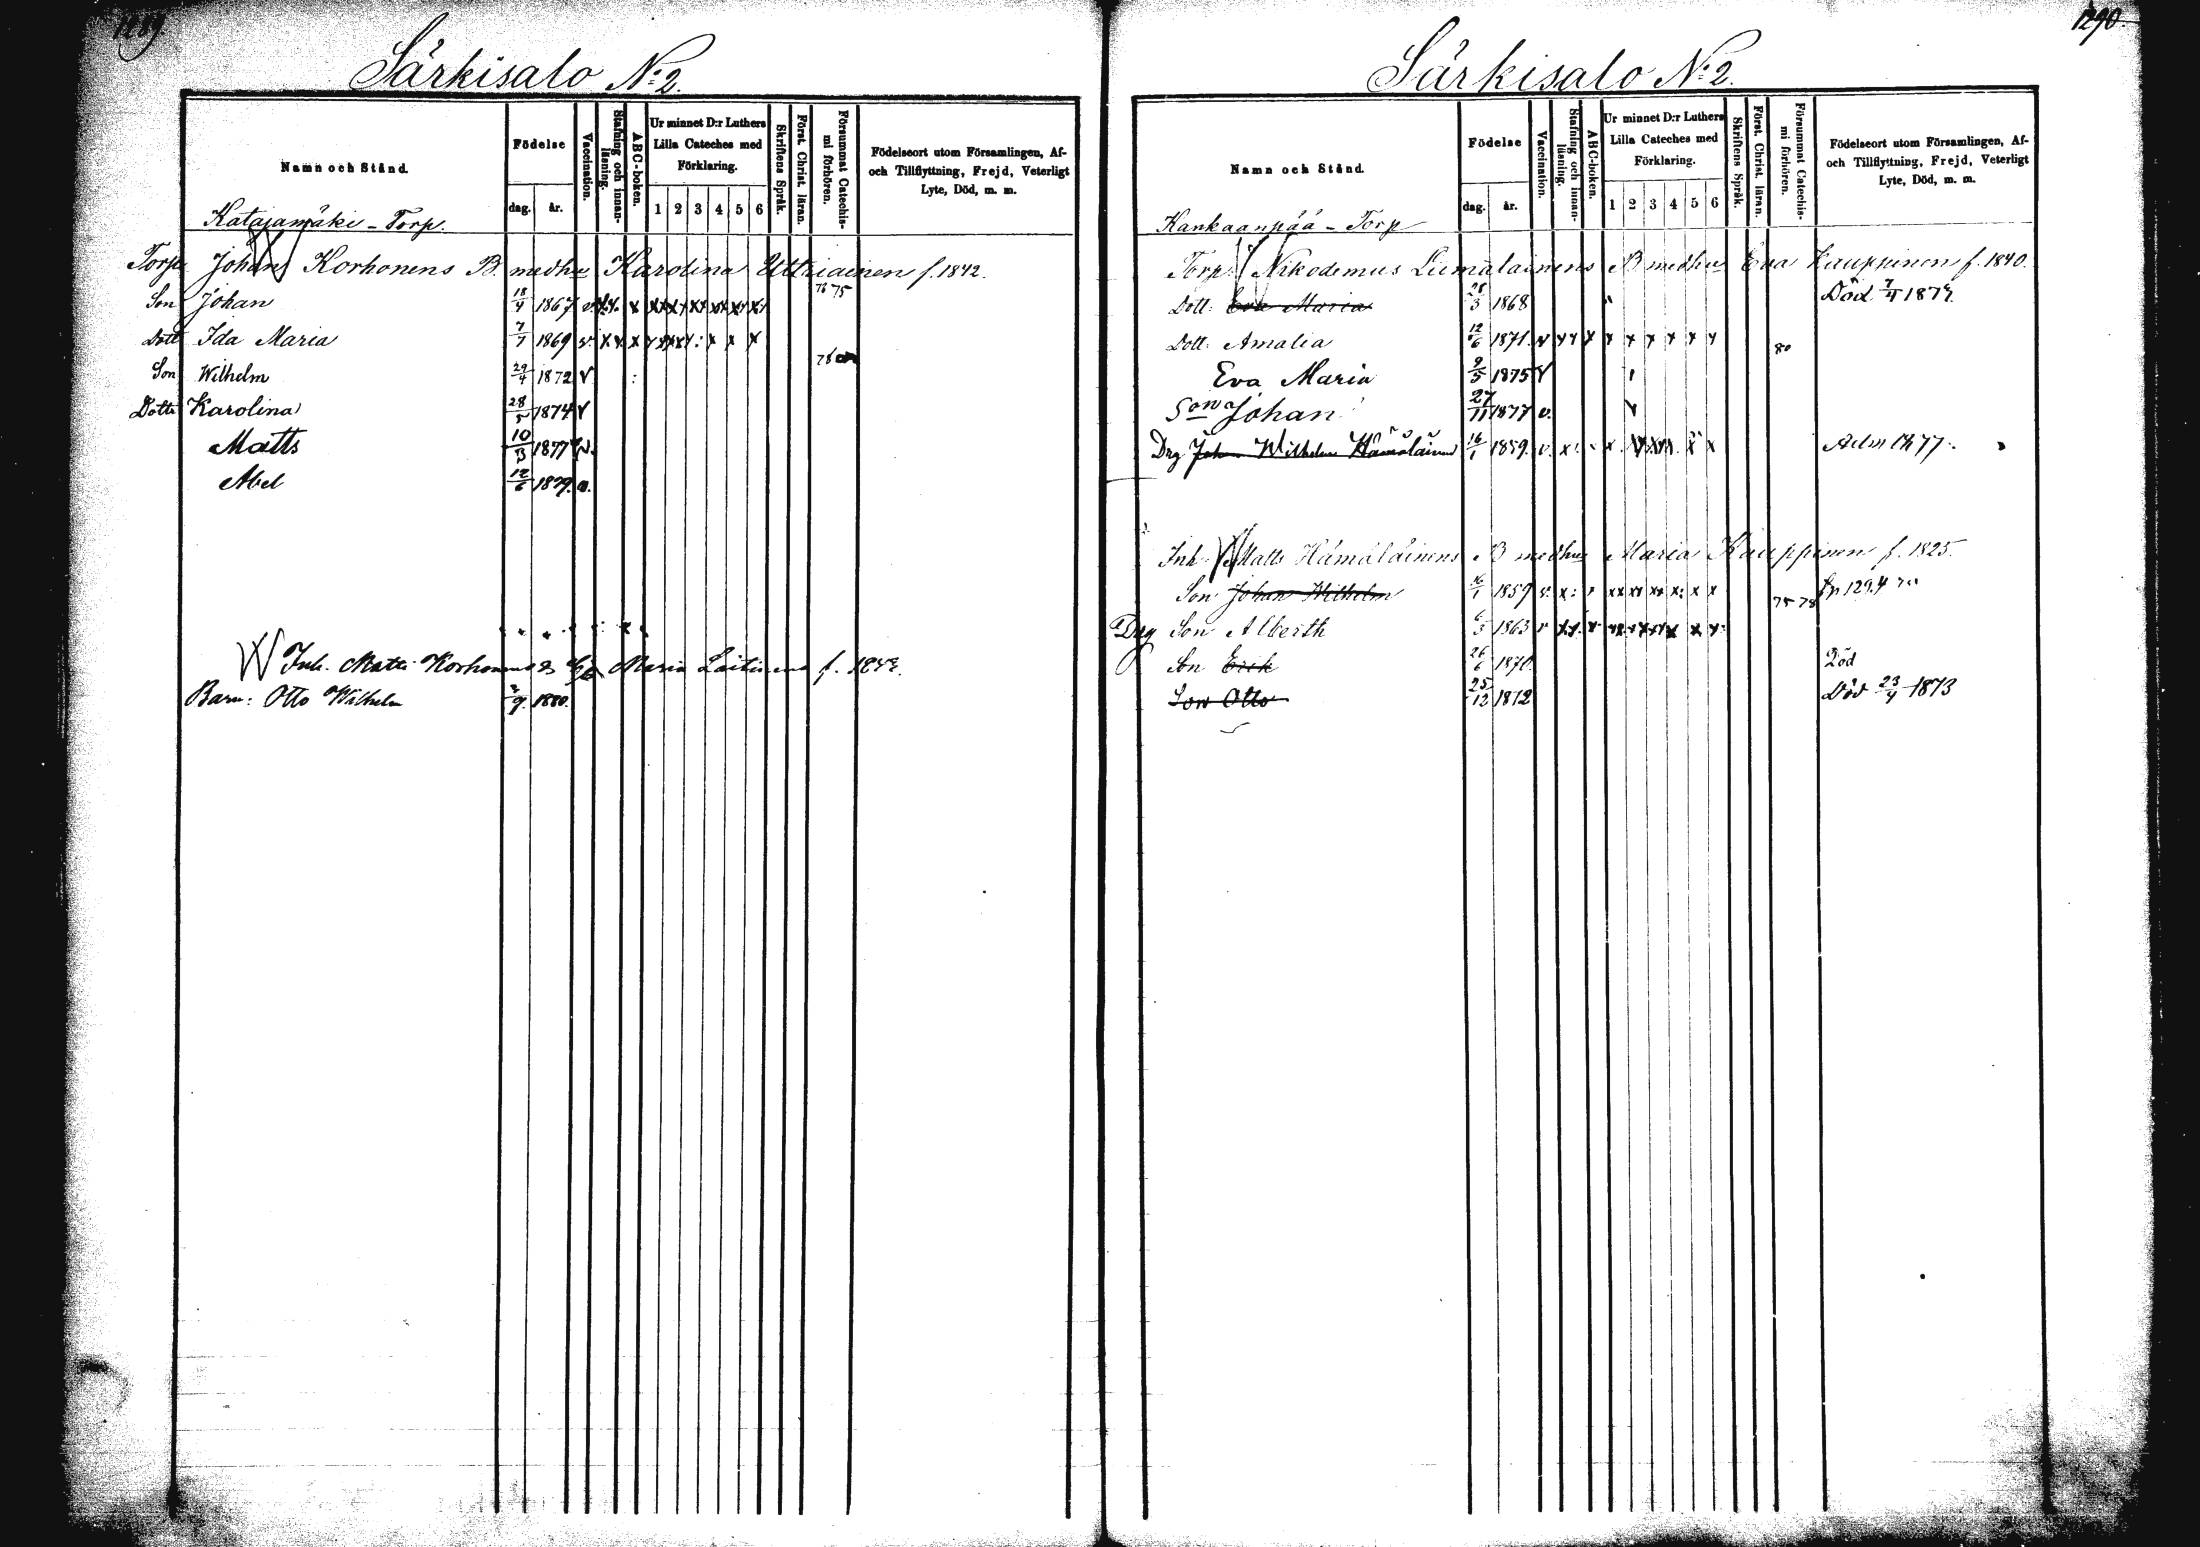 1289
Särkisalo N:o 2.
Namn och Stånd.
Födelse
dag.
år.
Vaccination.
Stafning och innanläsning.
ABC-boken.
Ur minnet D:r Luthers Lilla Cateches med Förklaring.
1 2 3 4 5 6
Skriftens Språk.
Först. Christ. läran.
Försummat Catechismi förhören.
Födelseort utom Församlingen, Af- och Tillflyttning, Frejd, Veterligt Lyte, Död, m. m.
Katajamäki - Torp.
Torp. Johan Korhonens B. med hu Karolina Uttriainen f. 1842.
Son Johan 18/4 1867 v. 75
Dott Ida Maria 7/7 1869 v.
Son Wilhelm 29/4 1872 v
Dottr Karolina 28/5 1874 v
Matts 10/3 1877 v.
Abel 12/6 1879. v.
Inh. Matts Korhonens Maria Laitinens f.
Barn: Otto Wilhelm 1880.
1290.
Särkisalo N:o 2.
Namn och Stånd.
Födelse
dag.
år.
Vaccination.
Stafning och innanläsning.
ABC-boken.
Ur minnet D:r Luthers Lilla Cateches med Förklaring.
1 2 3 4 5 6
Skriftens Språk.
Först. Christ. läran.
Försummat Catechismi förhören.
Födelseort utom Församlingen, Af- och Tillflyttning, Frejd, Veterligt Lyte, Död, m. m.
Kankaanpää - Torp
Torp. Nikodemus Liimalainens B med hu Eva Kauppinen f. 1840.
Dott: Eva Maria 28/3 1868 Död 7/4
Dott: Amalia 12/6 1871. v 80
Eva Maria 9/5 1875 v
Son Johan 27/11 1877 v.
Drg Johan Wilhelm Hämäläinen 16/1 1859. v. Adm 1877.
Inh. Matts Hämäläinens B med hu Maria Kauppinen f. 1825.
Son Johan Wilhelm 16/1 1859 v. 75 78 fr 1294
Drg Son Alberth 6/3 1863 v
Son Erik 26/6 1870. Död
Son Otto 25/12 1872 Död 23/4 1873